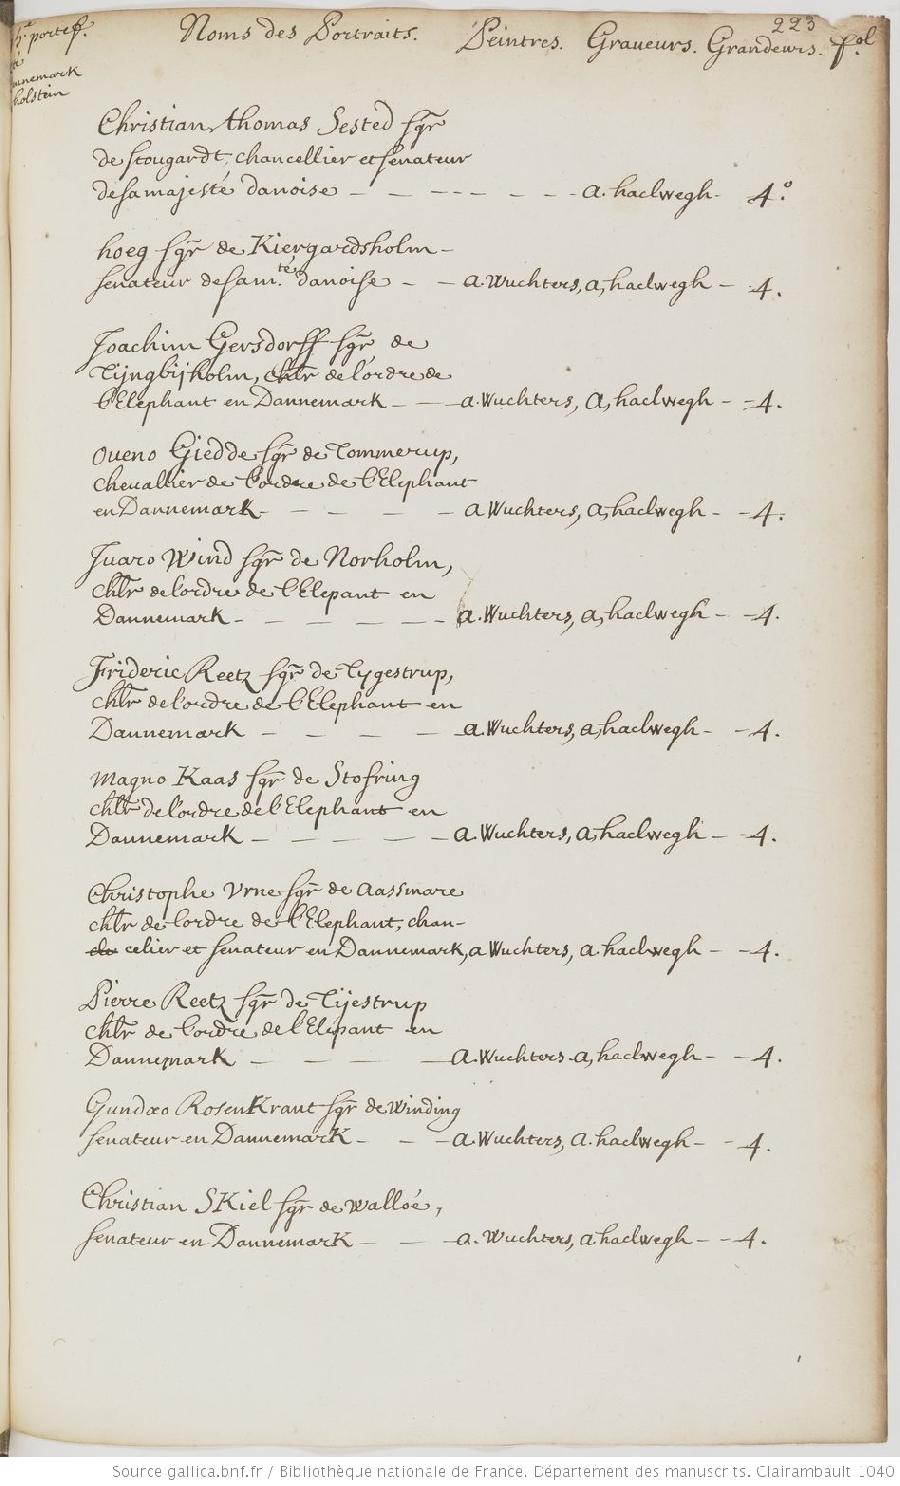 223
portef.
Dannemark
holstein
Noms des Portraits. Peintres. Graveurs. Grandeurs. fol
Christian thomas Sested sgr
de stougardt, chancellier et senateur
de sa majesté danoise - - - - - - - a. haelwegh - 4.°
hoeg sgr de Kiergardsholm -
senateur de sa m.té danoise - - a. Wuchters, a, haelwegh - 4.
Joachim Gersdorff sgr de
Tijngbijholm, chlr de l'ordre de
l'Elephant en Dannemark - - a. Wuchters, a, haelwegh - - 4.
Oueno Giedde sgr de Tommerup,
chevallier de l'ordre de l'Elephant
en Dannemark - - - - - a Wuchters, a, haelwegh - - 4.
Juaro Wind sgr de Norholm,
chlr de l'ordre de l'Elepant en
Dannemark - - - - - - a. Wuchters, a, haelwegh - - 4.
Frideric Reetz sgr de Tygestrup,
chlr de l'ordre de l'Elephant en
Dannemark - - - - a. Wuchters, a, haelwegh - - 4.
Magno Kaas sgr de Stofring
chlr de l'ordre de l'Elephant en
Dannemark - - - - - a. Wuchters, a, haelwegh - - 4.
Christophe Vrne sgr de Aassmare
chlr de l'ordre de l'Elephant, chan-
celier et senateur en Dannemark, a Wuchters, a. haelwegh - - 4.
Pierre Reetz sgr de Tijestrup
chlr de l'ordre de l'Elepant en
Dannemark - - - - a. Wuchters. a, haelwegh - - 4.
Gundœo RosenKrant sgr de Winding
senateur en Dannemark - - - a. Wuchters, a. haelwegh - - 4.
Christian SKiel sgr de Walloé,
senateur en Dannemark - - - a. Wuchters, a. haelwegh - - 4.
Source gallica.bnf.fr / Bibliothèque nationale de France. Département des manuscrits. Clairambault 1040